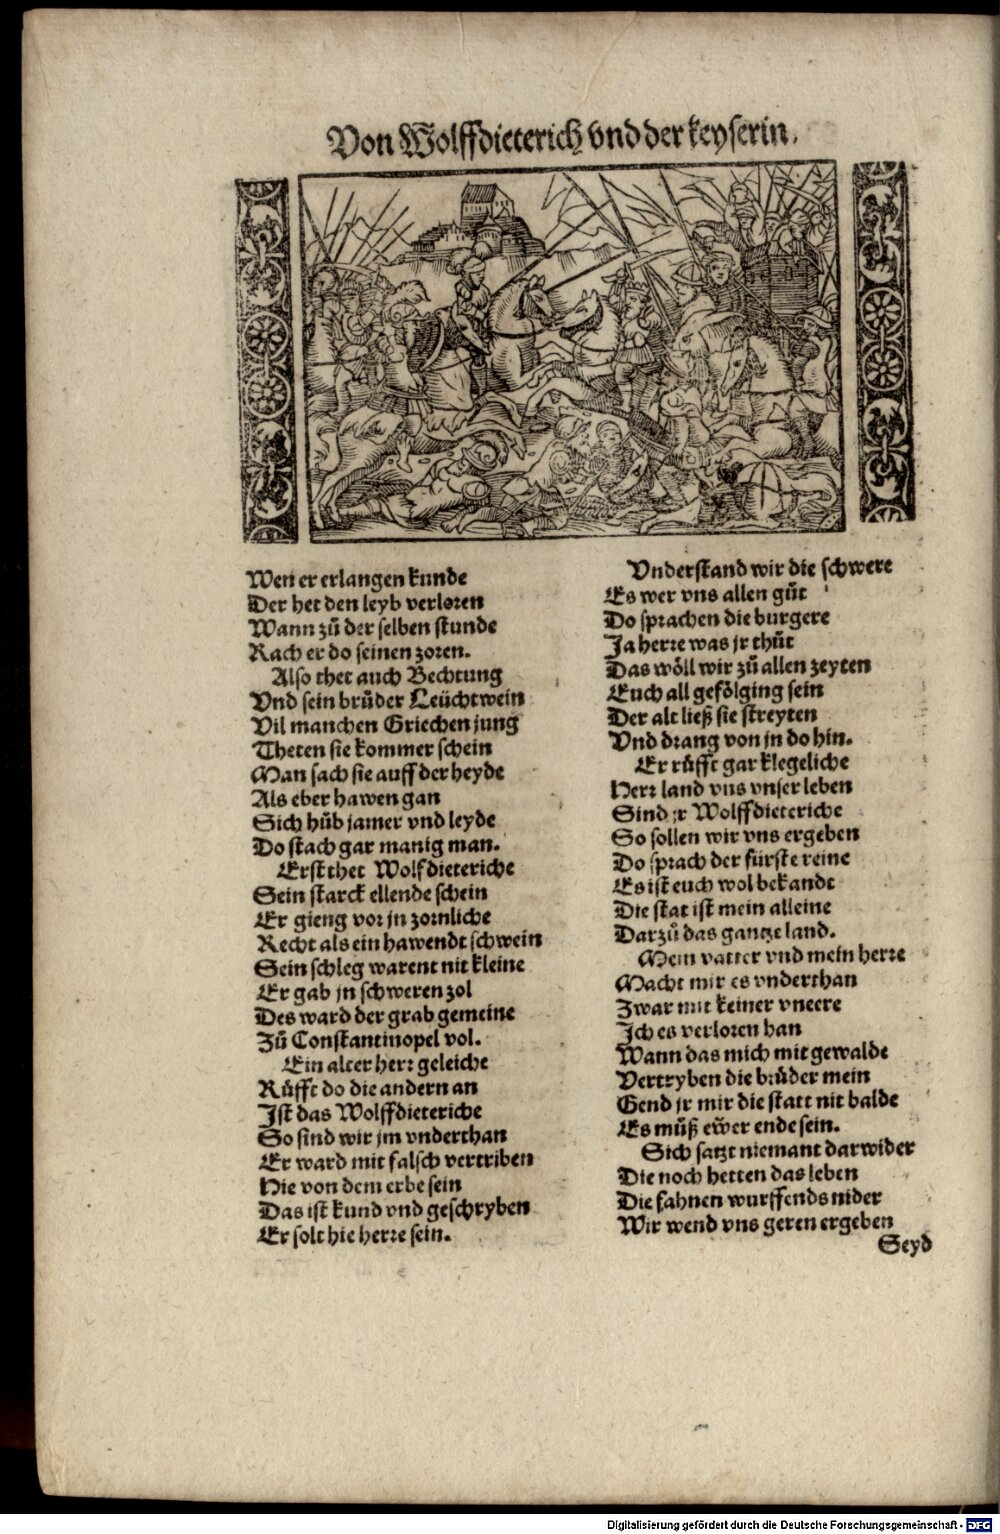 Von Wolffdieterich vnd der keyserin.
Wen er erlangen kunde
Der het den leyb verloren
Wann zů der selben stunde
Rach er do seinen zoren.
Also thet auch Bechtung
Vnd sein brůder Leüchtwein
Vil manchen Griechen jung
Theten sie kommer schein
Man sach sie auff der heyde
Als eber hawen gan
Sich hůb jamer vnd leyde
Do stach gar manig man.
Erst thet Wolfdieteriche
Sein starck ellende schein
Er gieng vor jn zornliche
Recht als ein hawendt schwein
Sein schleg warent nit kleine
Er gab jn schweren zol
Des ward der grab gemeine
Zů Constantinopel vol.
Ein alter herr geleiche
Růfft do die andern an
Ist das Wolffdieteriche
So sind wir jm vnderthan
Er ward mit falsch vertriben
Hie von dem erbe sein
Das ist kund vnd geschryben
Er solt hie herre sein.
Vnderstand wir die schwere
Es wer vns allen gůt
Do sprachen die burgere
Ja herre was jr thůt
Das wöll wir zů allen zeyten
Euch all gefölging sein
Der alt ließ sie streyten
Vnd drang von jn do hin.
Er růfft gar klegeliche
Herr land vns vnser leben
Sind jr Wolffdieteriche
So sollen wir vns ergeben
Do sprach der fürste reine
Es ist euch wol bekandt
Die stat ist mein alleine
Darzů das gantze land.
Mein vatter vnd mein herre
Macht mir es vnderthan
Zwar mit keiner vneere
Ich es verloren han
Wann das mich mit gewalde
Vertryben die brůder mein
Gend jr mir die statt nit balde
Es můß ewer ende sein.
Sich satzt niemant darwider
Die noch hetten das leben
Die fahnen wurffends nider
Wir wend vns geren ergeben
Seyd
Digitalisierung gefördert durch die Deutsche Forschungsgemeinschaft - DFG